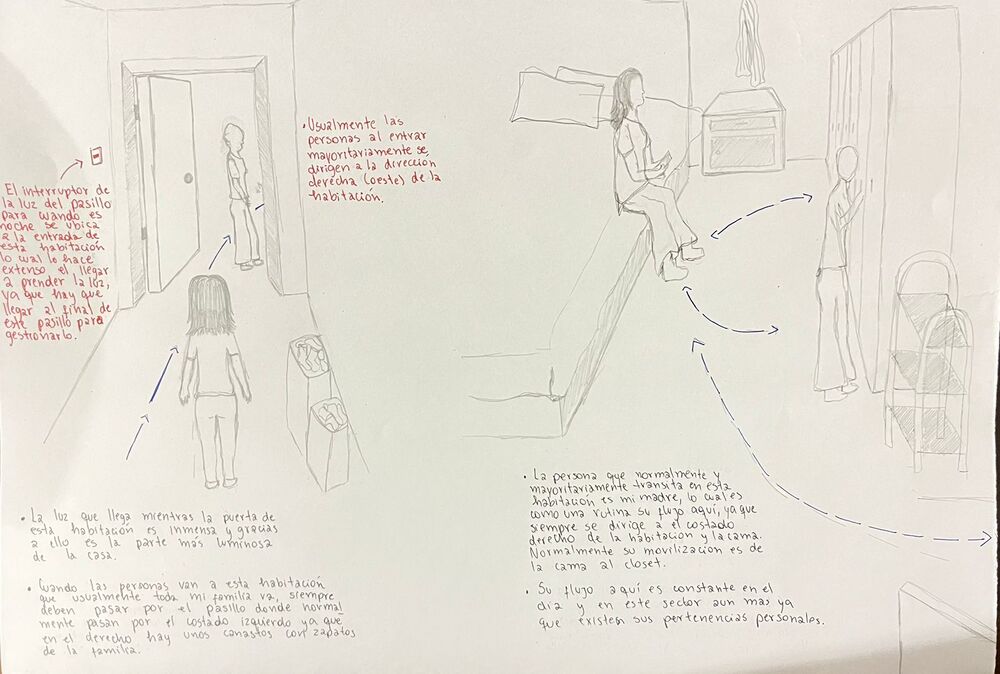 El interruptor de
la luz del pasillo
para cuando es
noche se ubica
a la entrada de
esta habitación
lo cual lo hace
extenso el llegar
a prender la luz,
ya que hay que
llegar al final de
este pasillo para
gestionarlo.
• Usualmente las
personas al entrar
mayoritariamente se
dirigen a la dirección
derecha (oeste) de la
habitación.
• La luz que llega mientras la puerta de
esta habitación es inmensa y gracias
a ello es la parte más luminosa
de la casa.
• Cuando las personas van a esta habitación
que usualmente toda mi familia va, siempre
deben pasar por el pasillo donde normal
mente pasan por el costado izquierdo ya que
en el derecho hay unos canastos con zapatos
de la familia.
• La persona que normalmente y
mayoritariamente transita en esta
habitación es mi madre, lo cual es
como una rutina su flujo aquí, ya que
siempre se dirige a el costado
derecho de la habitación y la cama.
Normalmente su movilización es de
la cama al closet.
• Su flujo aquí es constante en el
día y en este sector aun mas ya
que existen sus pertenencias personales.